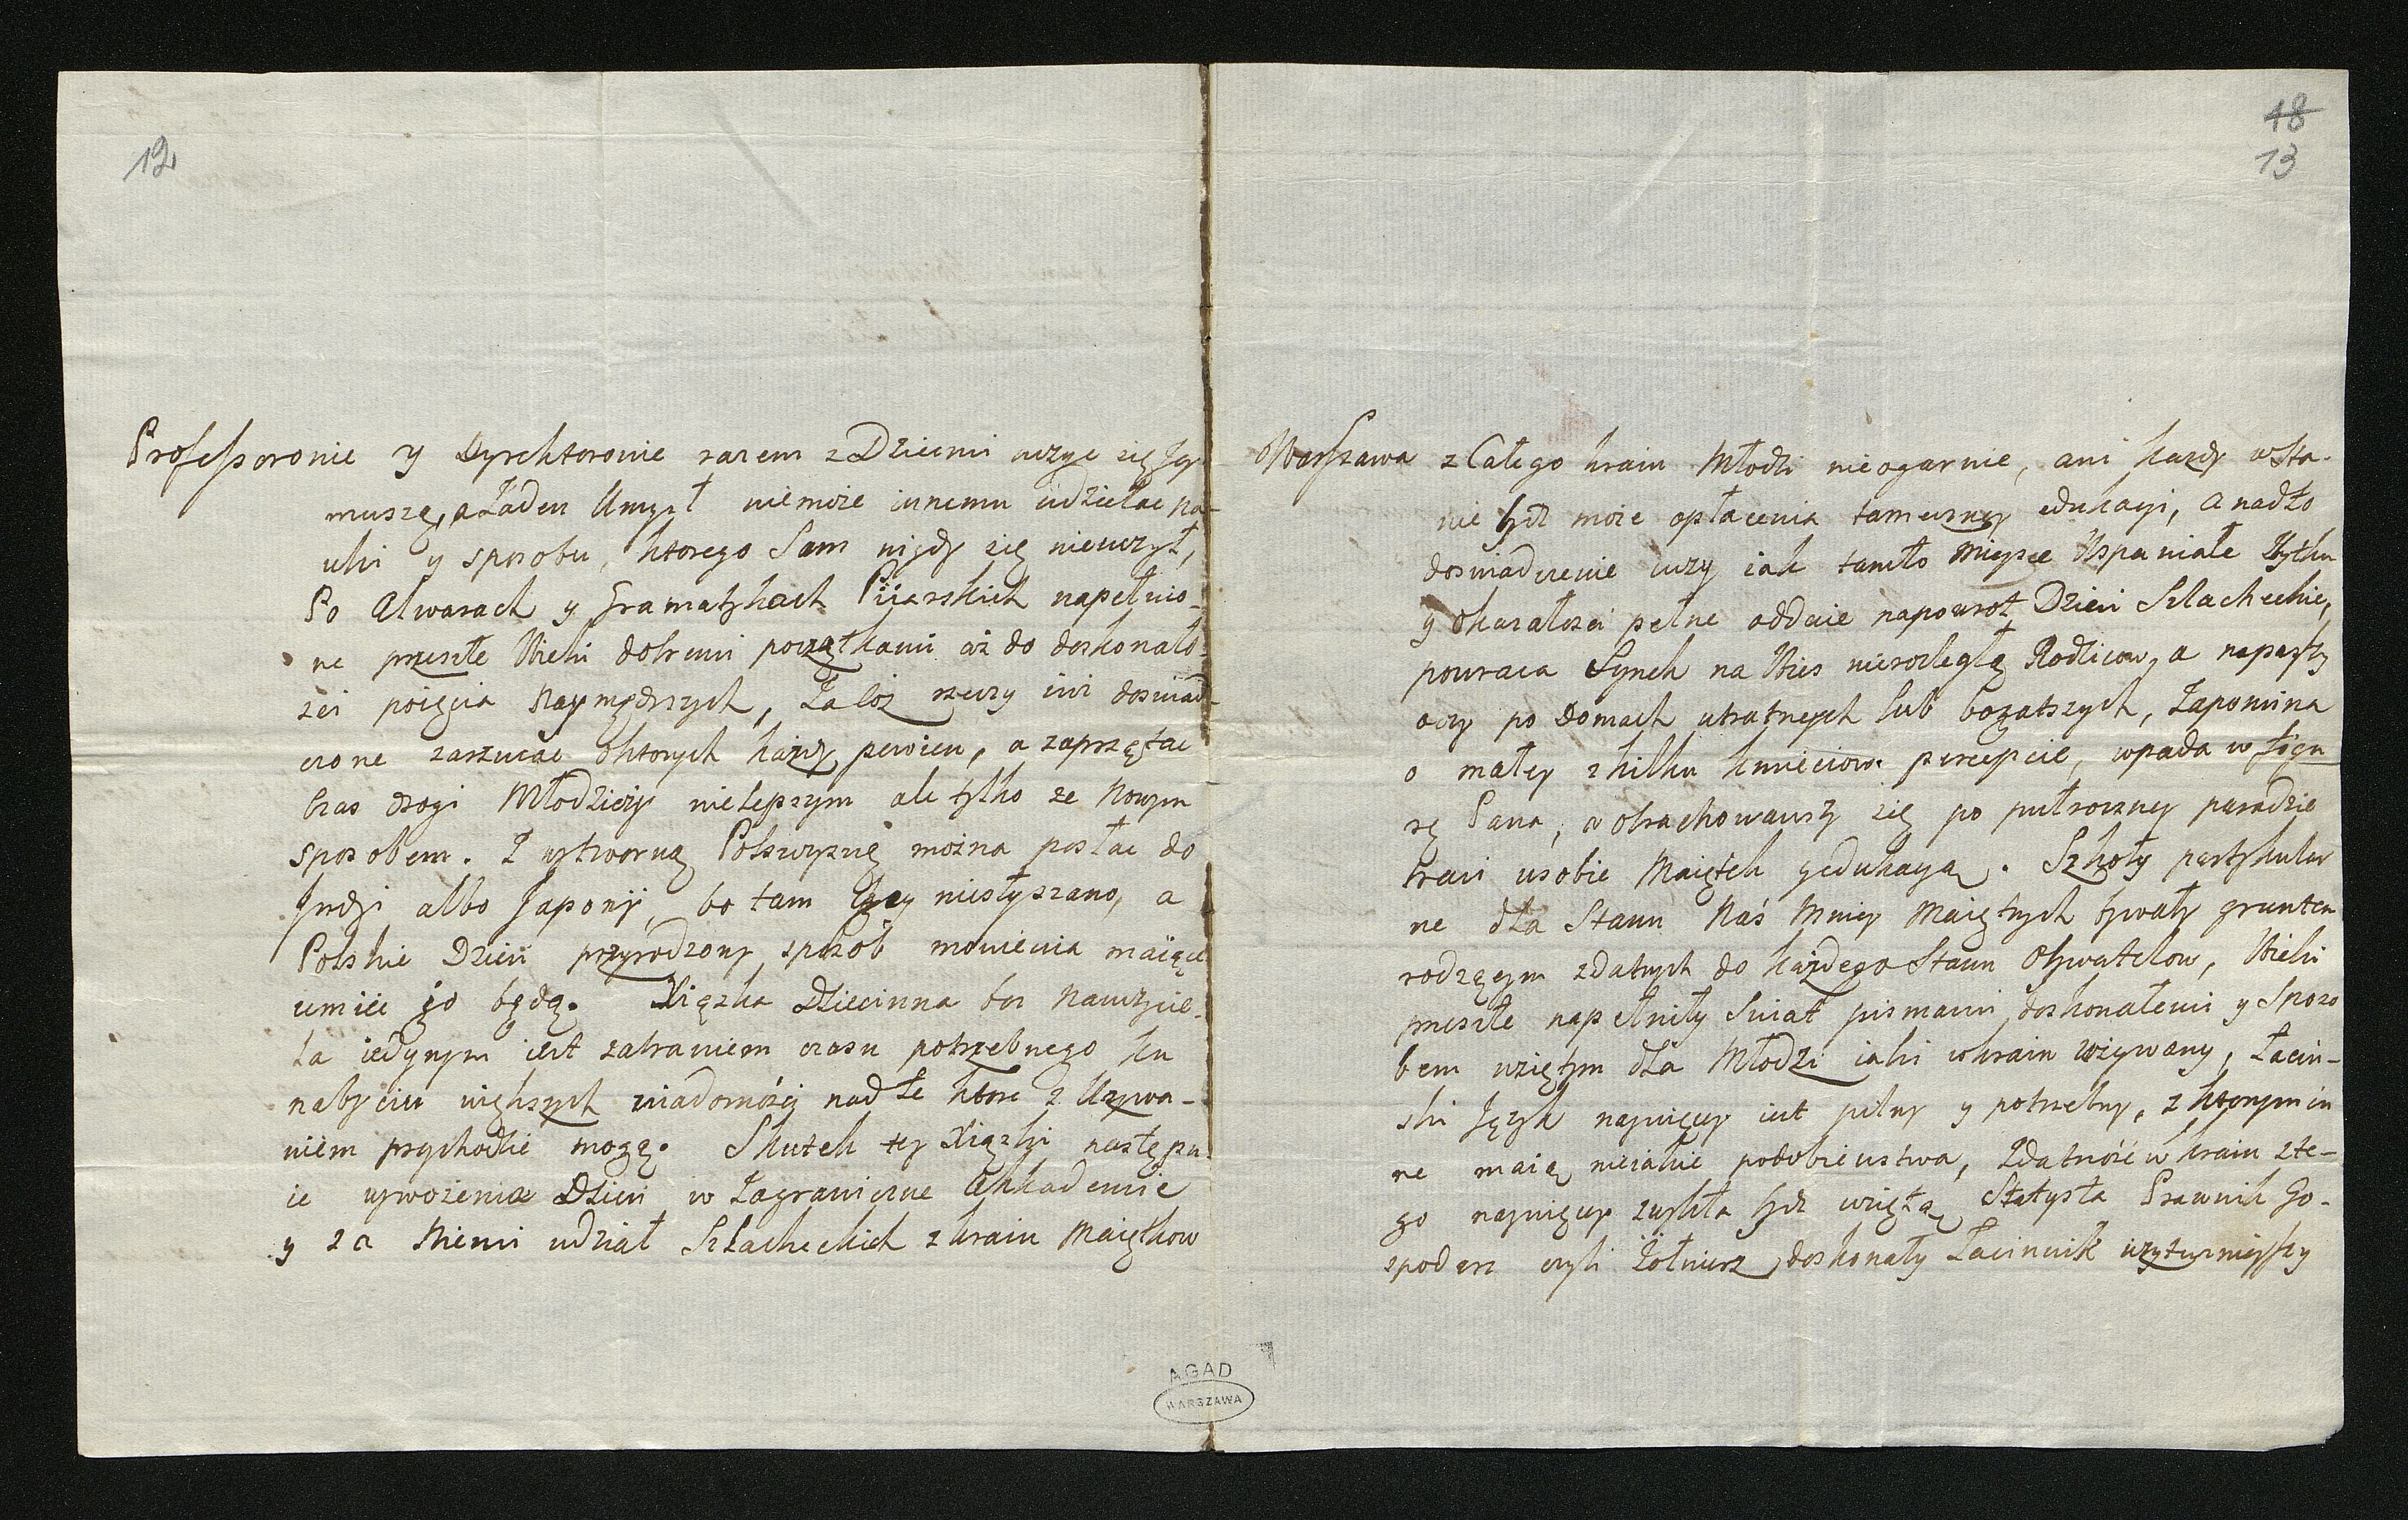 12
Professorowie y Dyrektorowie razem z Dziecmi uczyc się Jey
muszą, a Zaden Umysł niemoże innemu udzielac na-
uki y sposobu, ktorego Sam nigdy się nieuczył,
Po Alwarach y Gramatykach Piiarskich napełnio-
ne przeszłe Wieki dobremi początkami aż do doskonało-
sci poięcia Naymędrszych, Zaloż rzeczy iuż doswiad-
czone zarzucac o ktorych każdy pewien, a zaprzątac
czas drogi Młodzieży nielepszym ale tylko ze Nowym
sposobem. Z wytworną Polszczyzną można posłac do
Jndyi albo Japonij, bo tam Jey niesłyszano, a
Polskie Dzieci przyrodzony sposob mowienia maiąc
umiec go będą. Xiązka Dziecinna bez Nauczycie-
la iedynym iest zatraceniem czasu potrzebnego ku
nabyciu większych wiadomości nad te ktore z Używa-
niem przychodzic mogą. Skutek tey Xiązki następu-
ie wywożenia Dzieci w Zagraniczne Akkademie
y za Niemi udział Szlacheckich z kraiu Maiątkow
48
13
Warszawa z Całego kraiu Młodzi nieogarnie, ani każdy w sta-
nie bydz może opłacenia tameczney edukacyi, a nadto
doswiadczenie uczy iak tamto Mieysce Wspaniałe Zbytku
y okazałosci pełne oddaie napowrot Dzieci Szlacheckie,
powraca Synek na Wies nierozległą Rodzicow, a napasszy
oczy po Domach utratnych lub bogatszych, Zapomina
o małey z kilku kmieciow percepcie, wpada w figu-
rę Pana, a obrachowawszy się po pułroczney paradzie
traci usobie Maiątek y edukacyą. Szkoły partykular
ne dla Stanu Nas Mniey Maiętnych bywały gruntem
rodzącym zdatnych do każdego Stanu Obywatelow, Wieki
przeszłe napełniły Swiat pismami doskonałemi y Sposo
bem wziętym dla Młodzi iaki w kraiu używany, Łacin-
ski Język naywięcey iest pilny y potrzebny, z ktorym in
ne maią nieiakie podobienstwa, Zdatność w kraiu z te-
go naywięcey zwykła bydz wziętą, Statysta Prawnik Go-
spodarz czyli Żołnierz, doskonały Łacinnik użytecznieyszy
AGAD
WARSZAWA